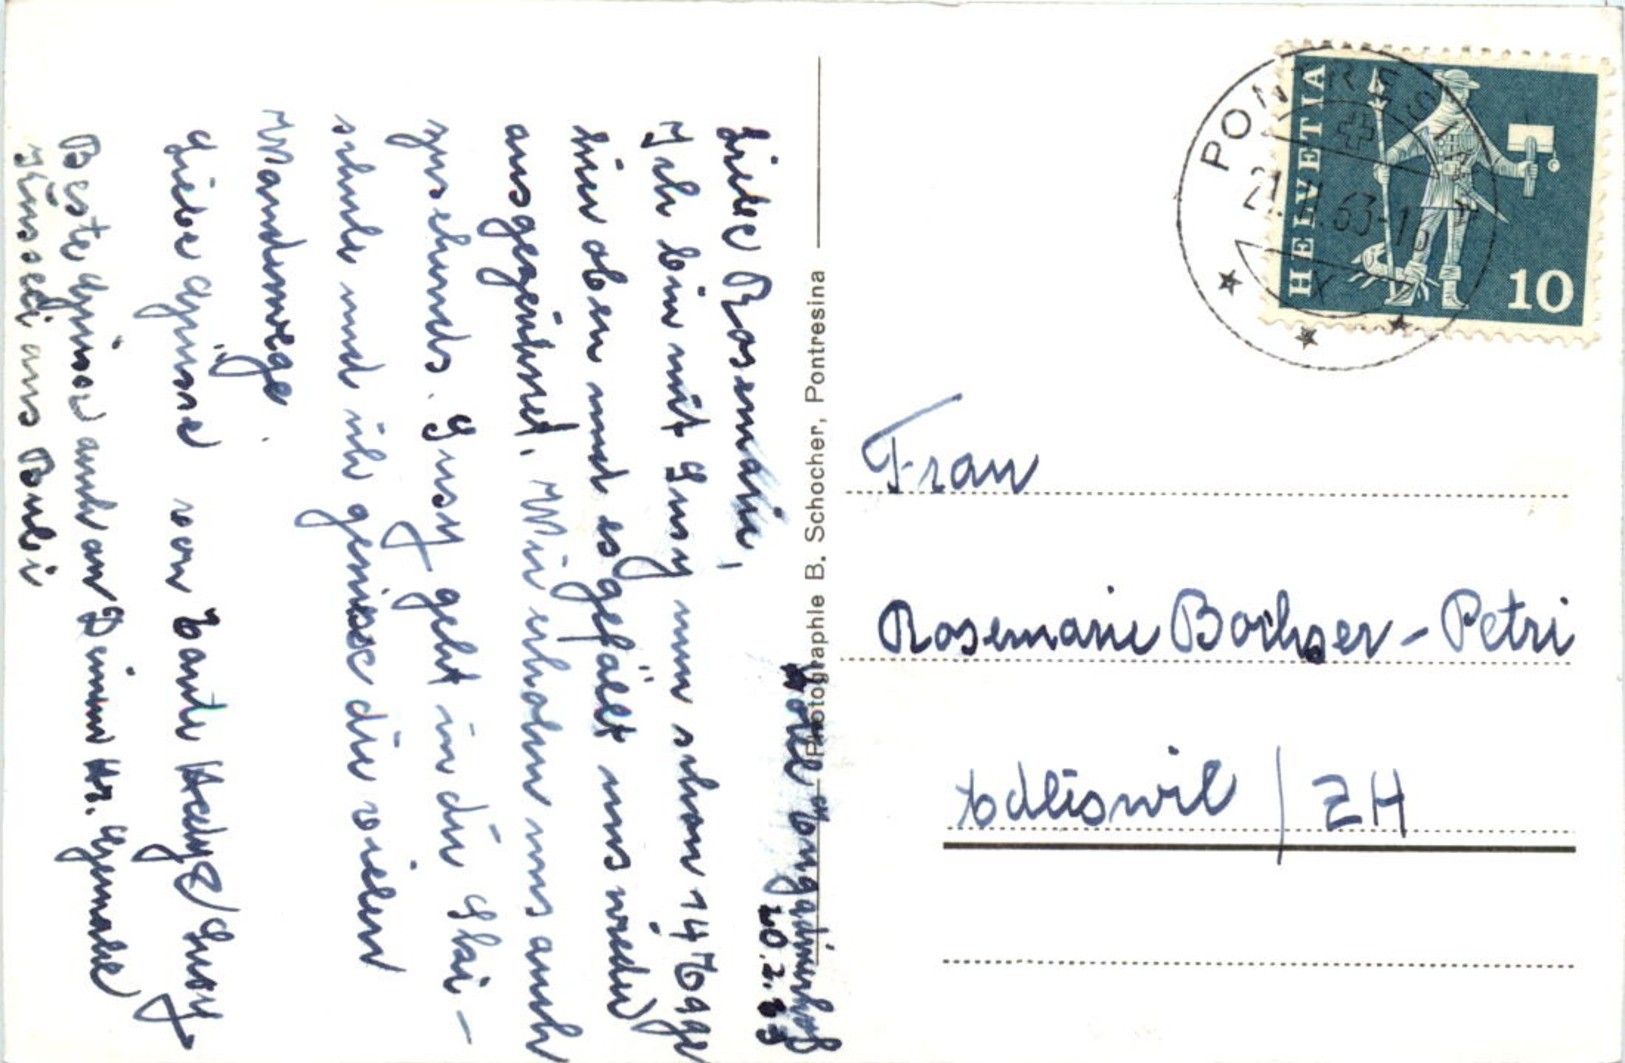 Hotel Engadinerhof
20.2.63
Liebe Rosemarie,
Ich bin mit Susy nun schon 14 Tage
hier oben und es gefällt uns wieder
ausgezeichnet. Wir erholen uns auch
zusehends. Susy geht in die Ski-
schule und ich geniesse die vielen
Wanderwege.
Liebe Grüsse von Tante Hedy & Susy
Beste Grüsse auch an Deinen Hr. Gemahl
Photographie B. Schocher, Pontresina
PONTRESINA
21.II.63-16
HELVETIA
10
Frau
Rosemarie Bochsler-Petri
Adliswil / ZH